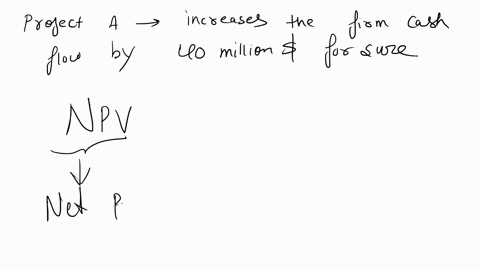 Project A → increases the firm cash
flow by 40 million $ for sure
NPV
Net P